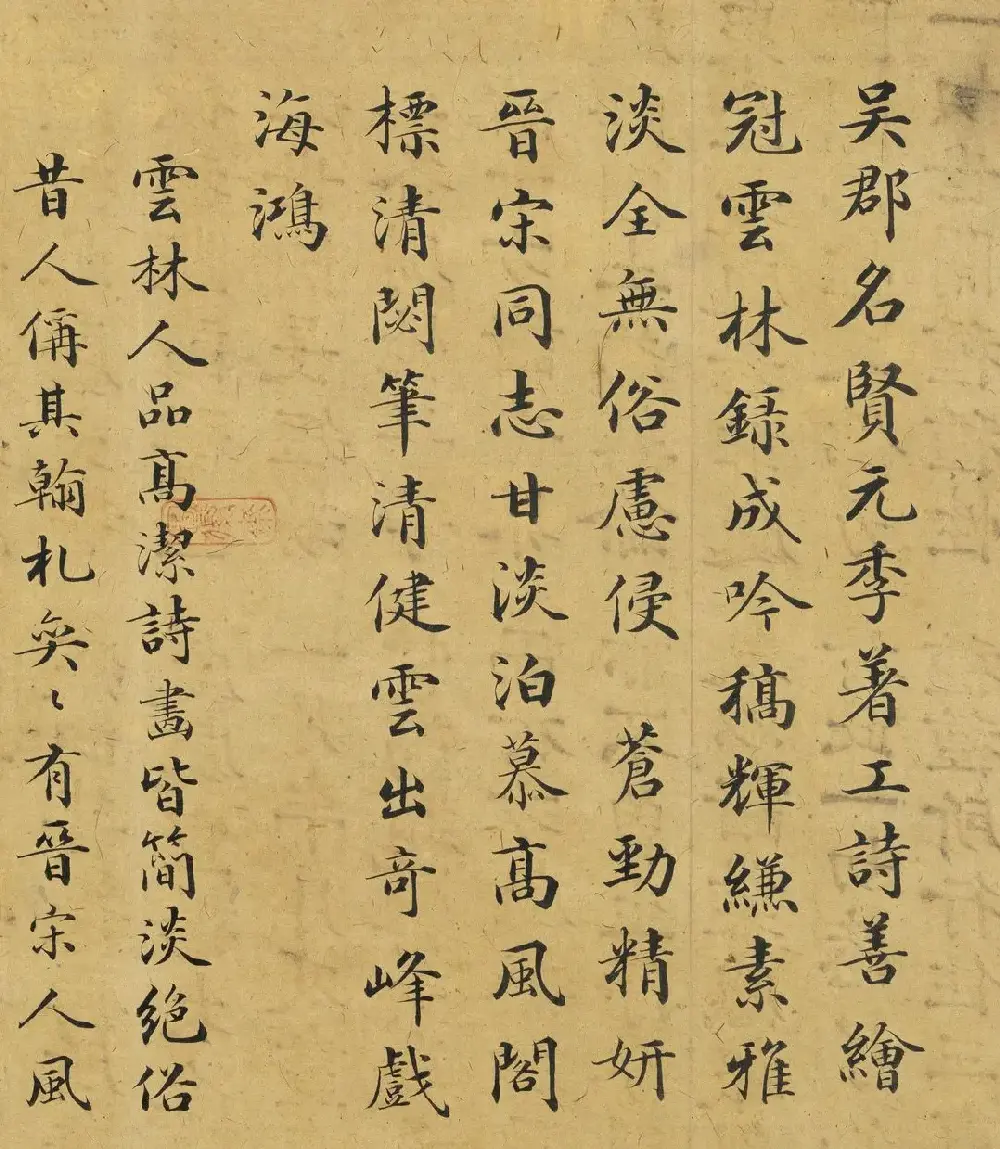 吴郡名賢元季著工詩善繪
冠雲林録成吟稿輝縑素雅
淡全無俗慮侵 蒼勁精妍
晉宋同志甘淡泊慕髙風閣
標清閟筆清健雲出竒峰戲
海鴻
雲林人品髙潔詩畫皆簡淡絶俗
昔人偁其翰札奕〻有晉宋人風